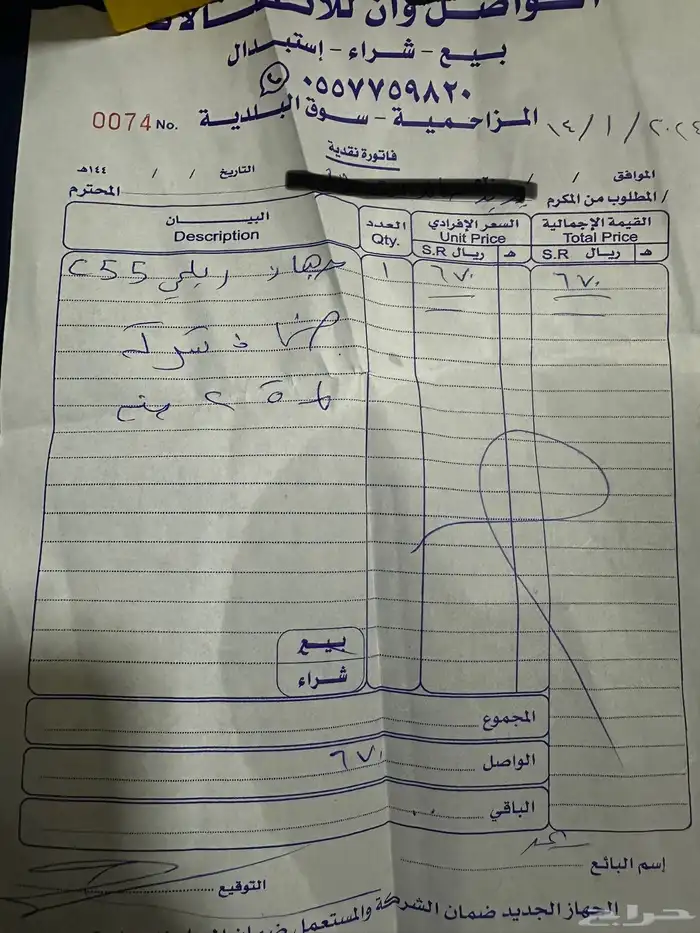 التواصل وان للاتصالات
بيع - شراء - إستبدال
٠٥٥٧٧٥٩٨٢٠
المزاحمية - سوق البلدية
No. 0074
١٤ / ١ / ٢٠٢٤
فاتورة نقدية
الموافق / /
التاريخ / / ١٤٤هـ
المطلوب من المكرم /
المحترم
البيان
Description
العدد
Qty.
السعر الإفرادي
Unit Price
القيمة الإجمالية
Total Price
هـ ريال S.R
هـ ريال S.R
جهاز ريلمي C55
١
٦٧٠
٦٧٠
ضمان شركة
لمدة ٢ سنه
بيع
شراء
المجموع
الواصل ٦٧٠
الباقي ..
إسم البائع
التوقيع
الجهاز الجديد ضمان الشركة والمستعمل ضمان
حراج